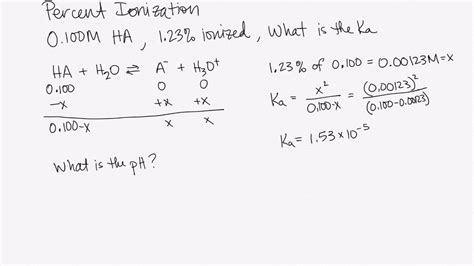 Percent Ionization
0.100M HA , 1.23% ionized, What is the Ka
HA + H₂O ⇌ A⁻ + H₃O⁺
0.100 0 0
-x +x +x
0.100-x x x
1.23% of 0.100 = 0.00123M = x
Ka = x²/(0.100-x) = (0.00123)²/(0.100-0.0023)
Ka = 1.53 × 10⁻⁵
What is the pH?